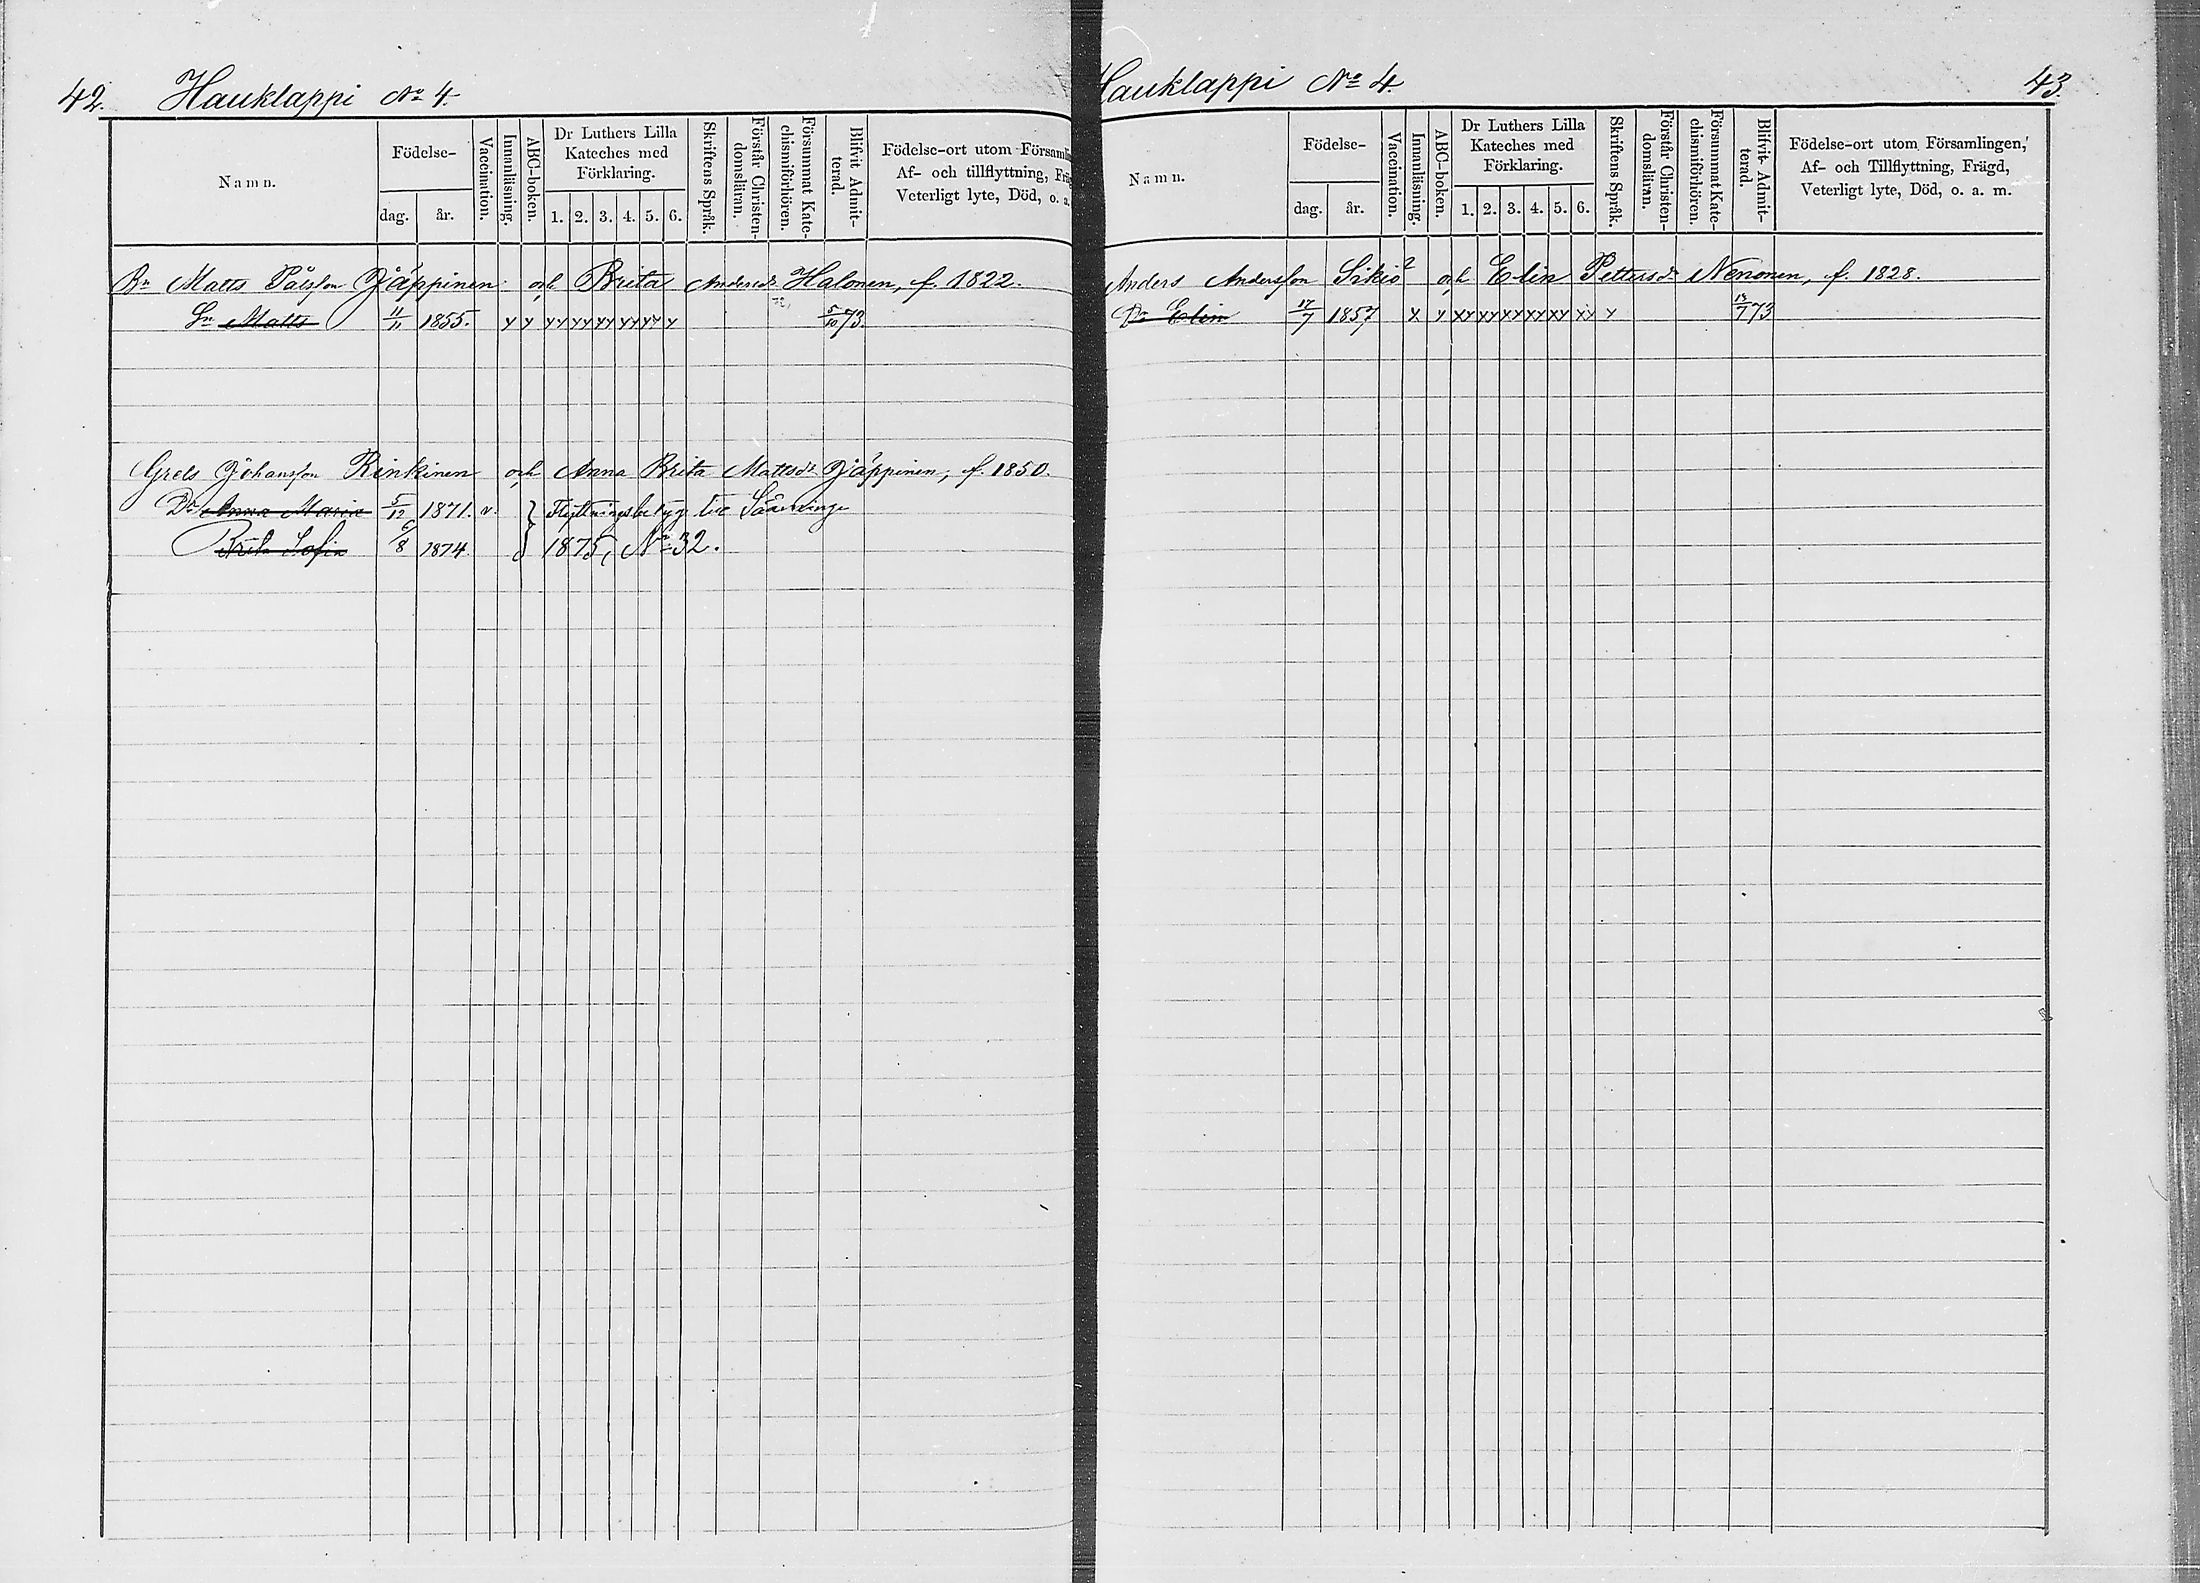 42. Hauklappi No 4.
Namn.
Födelse-
dag. år.
Vaccination.
Innanläsning.
ABC-boken.
Dr Luthers Lilla
Kateches med
Förklaring.
1. 2. 3. 4. 5. 6.
Skriftens Språk.
Förstår Christen-
domsläran.
Försummat Kate-
chismiförhören.
Blifvit Admit-
terad.
Födelse-ort utom Församl
Af- och tillflyttning, Fräg
Veterligt lyte, Död, o. a.
Bn Matts Pålsson Jäppinen och Brita Andersdr Halonen, f. 1822.
Sn Matts 11/11 1855. x x xx xx xx xx xx x 5/10 73.
Grels Johansson Rinkinen och Anna Brita Mattsdr Jäppinen, f. 1850.
Dr Anna Maria 5/12 1871. v. Flyttningsbetyg till Sääminge
Brita Sofia 6/8 1874. 1875, No 32.
Hauklappi No 4. 43.
Namn.
Födelse-
dag. år.
Vaccination.
Innanläsning.
ABC-boken.
Dr Luthers Lilla
Kateches med
Förklaring.
1. 2. 3. 4. 5. 6.
Skriftens Språk.
Förstår Christen-
domsläran.
Försummat Kate-
chismiförhören.
Blifvit Admit-
terad.
Födelse-ort utom Församlingen,
Af- och Tillflyttning, Frägd,
Veterligt lyte, Död, o. a. m.
Anders Andersson Sikiö och Elin Pettersdr Nenonen, f. 1828.
Dr Elin 17/7 1857 x x xx xx xx xx xx xx x 13/7 73